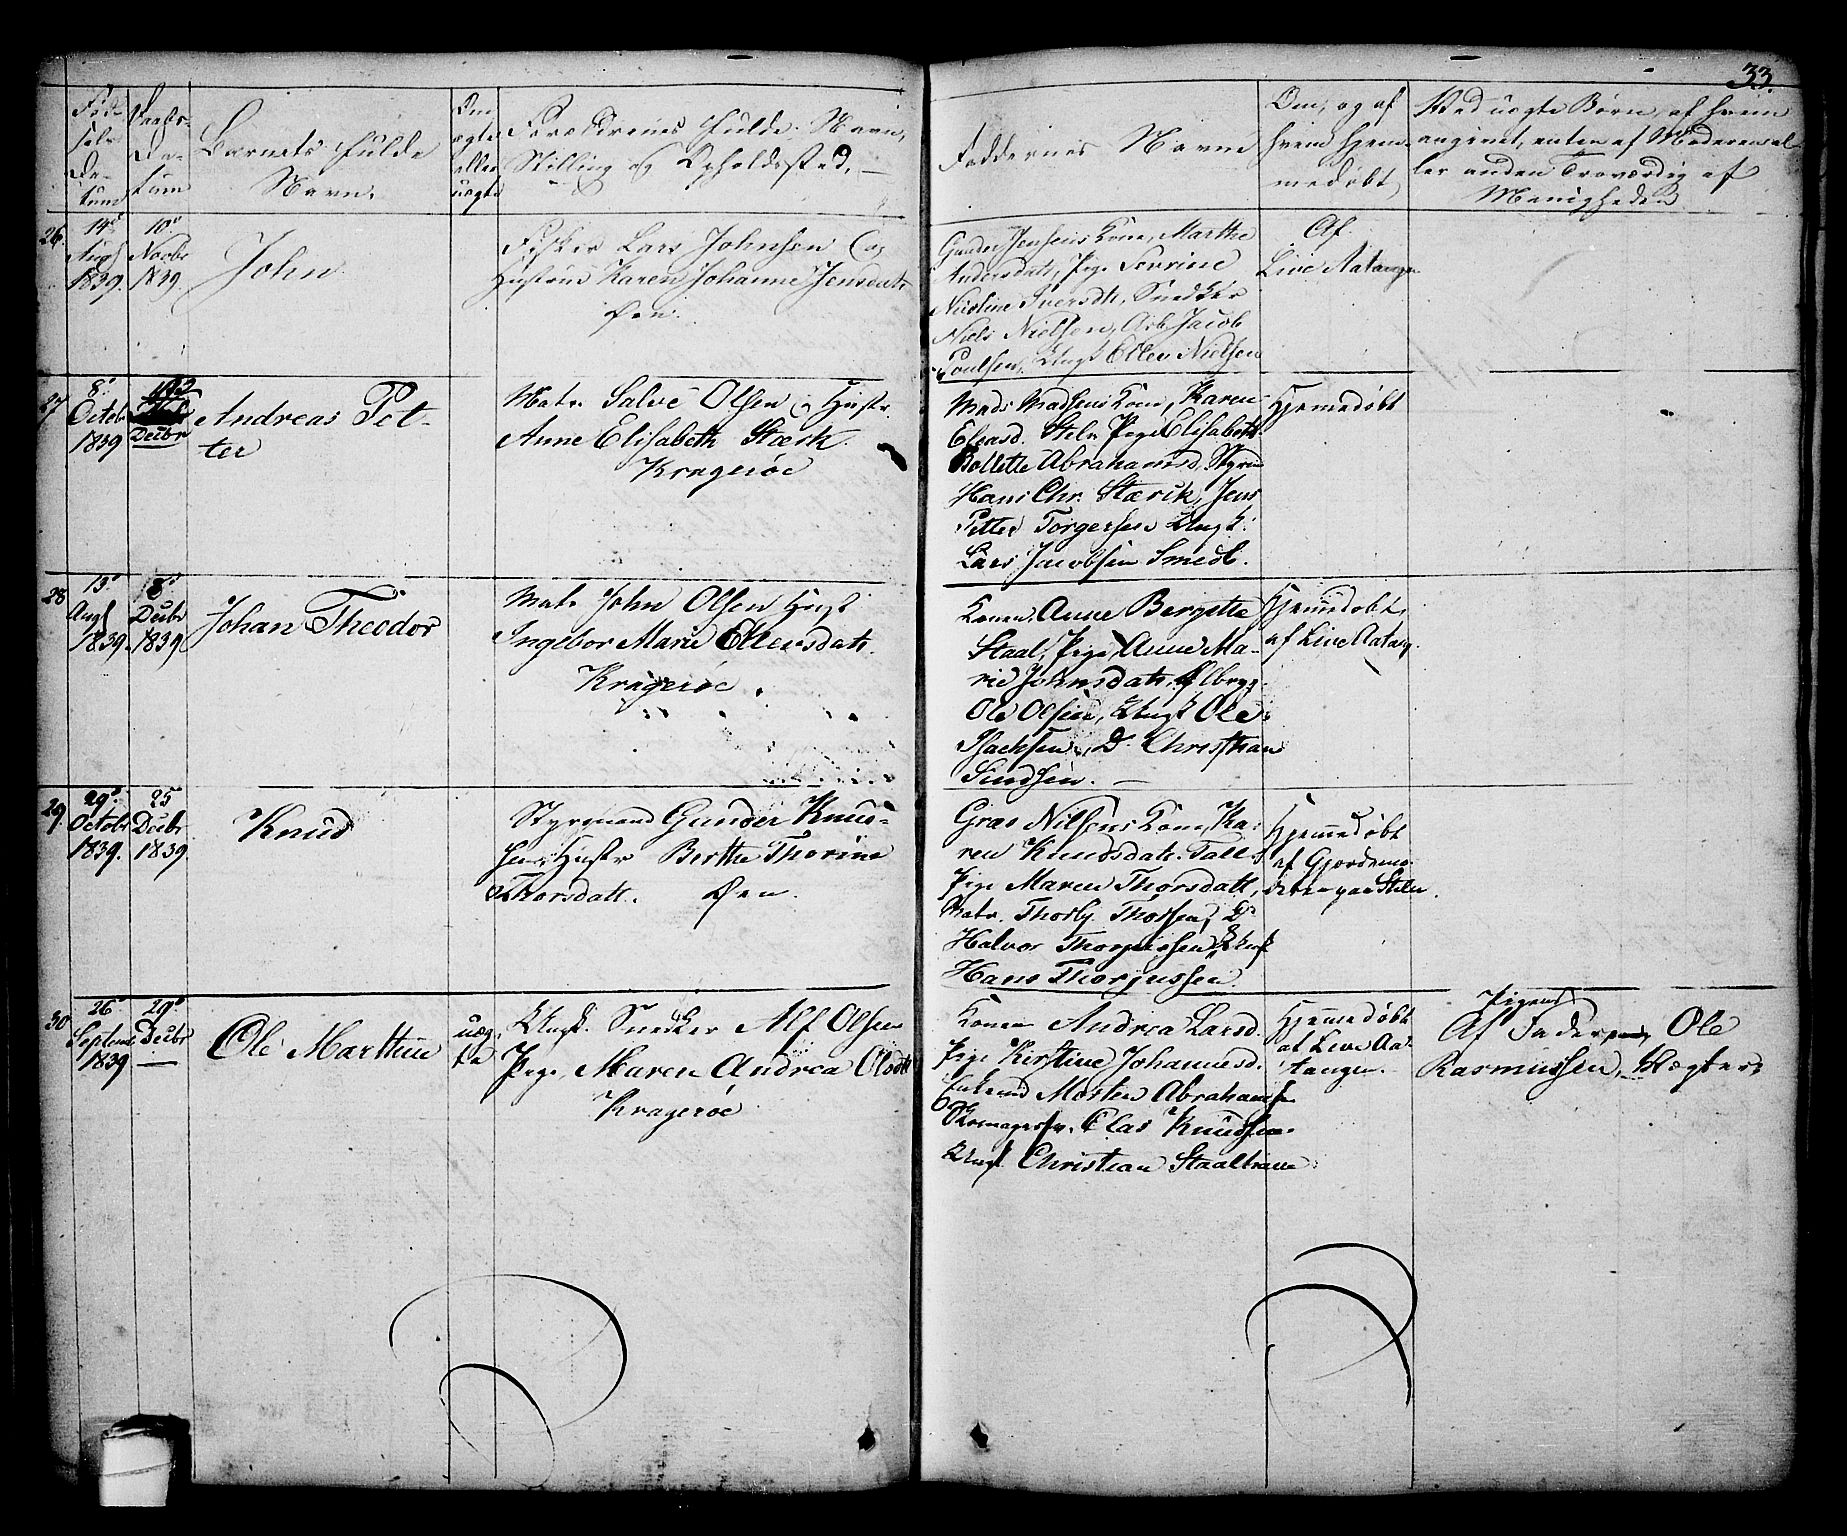 33.
Fød-
sels
Da-
tum
Daabs-
Da-
tum
Barnets fulde
Navn.
Om
ægte
eller
uægte
Forældrenes fulde Navn,
Stilling og Opholdssted.
Faddernes Navne
Om, og af
hvem hjem-
medøbt
Ved uægte Børn, af hvem
angivet, enten af Moderen el-
ler anden Troværdig af
Menigheden
26.
14de
Augt
1839.
10de
Novbr
1839.
John
Fisker Lars Johnsen og
Hustrue Karen Johanne Jensdatr
Øen.
Gunder Jensens Kone, Marthe
Andersdatr, Pige Severine
Nicoline Iversdtr, Snedker
Niels Nielsen, Arb. Jacob
Poulsen, Ungk. Ellev Nielsen
Af
Live Aatangen
27
8de
Octobr
1839
Decbr
Andreas Pet-
ter
Matr. Salve Olsen og Hustr.
Anne Elisabeth Stærk.
Kragerøe
Mads Madsens Kone, Karen
Eliasd. Pige Elisabeth
Bollette Abrahamsd. Styrm
Hans Chr. Stærk, Jens
Petter Torgersen Ungk.
Lars Jacobsen Smedb.
Hjemmedøbt
28
13de
Augt
1839.
8de
Decbr
1839
Johan Theodor
Matr John Olsen Hust
Ingebor Marie Ellensdatr.
Kragerøe
Konen Anne Bergitte
Staal, Pige Anne Ma-
rie Johnsdatr, Ølbryg.
Ole Olsen, Ungk Ole
Isachsen, Do Christian
Hjemmedøbt
af Live Aatang.
29.
29de
Octobr
1839.
25
Decbr
1839.
Knud
Styrmand Gunder Knud-
sen, Hustr Berthe Thorine
Thorsdatt. Øen.
Graa Nilsens Kone, Ka-
ren Knudsdatr. Tall.
Pige Maren Thorsdatt,
Matr. Thorbj. Thorsen, Do
Halvor Thorjussen, Ungk
Hans Thorjussen.
Hjemmedøbt
af Gjordemo-
deren paa Steln.
30
26de
Septem
1839
29de
Decbr
Ole Marthin
uæg-
te
Ungk. Snedker Alf Olsen
Pige Maren Andrea Olsdtt
Kragerøe
Konen Andrea Larsd.
Pige Kirstine Johannesd.
Enkemd Morten Abrahamse
Skomagersv. Clas Knudsen
Ungk. Christian Staaltraae
Hjemmedøbt
af Live Aa-
tangen.
Pigens
Af Fader, Ole
Rasmussen, Vægter